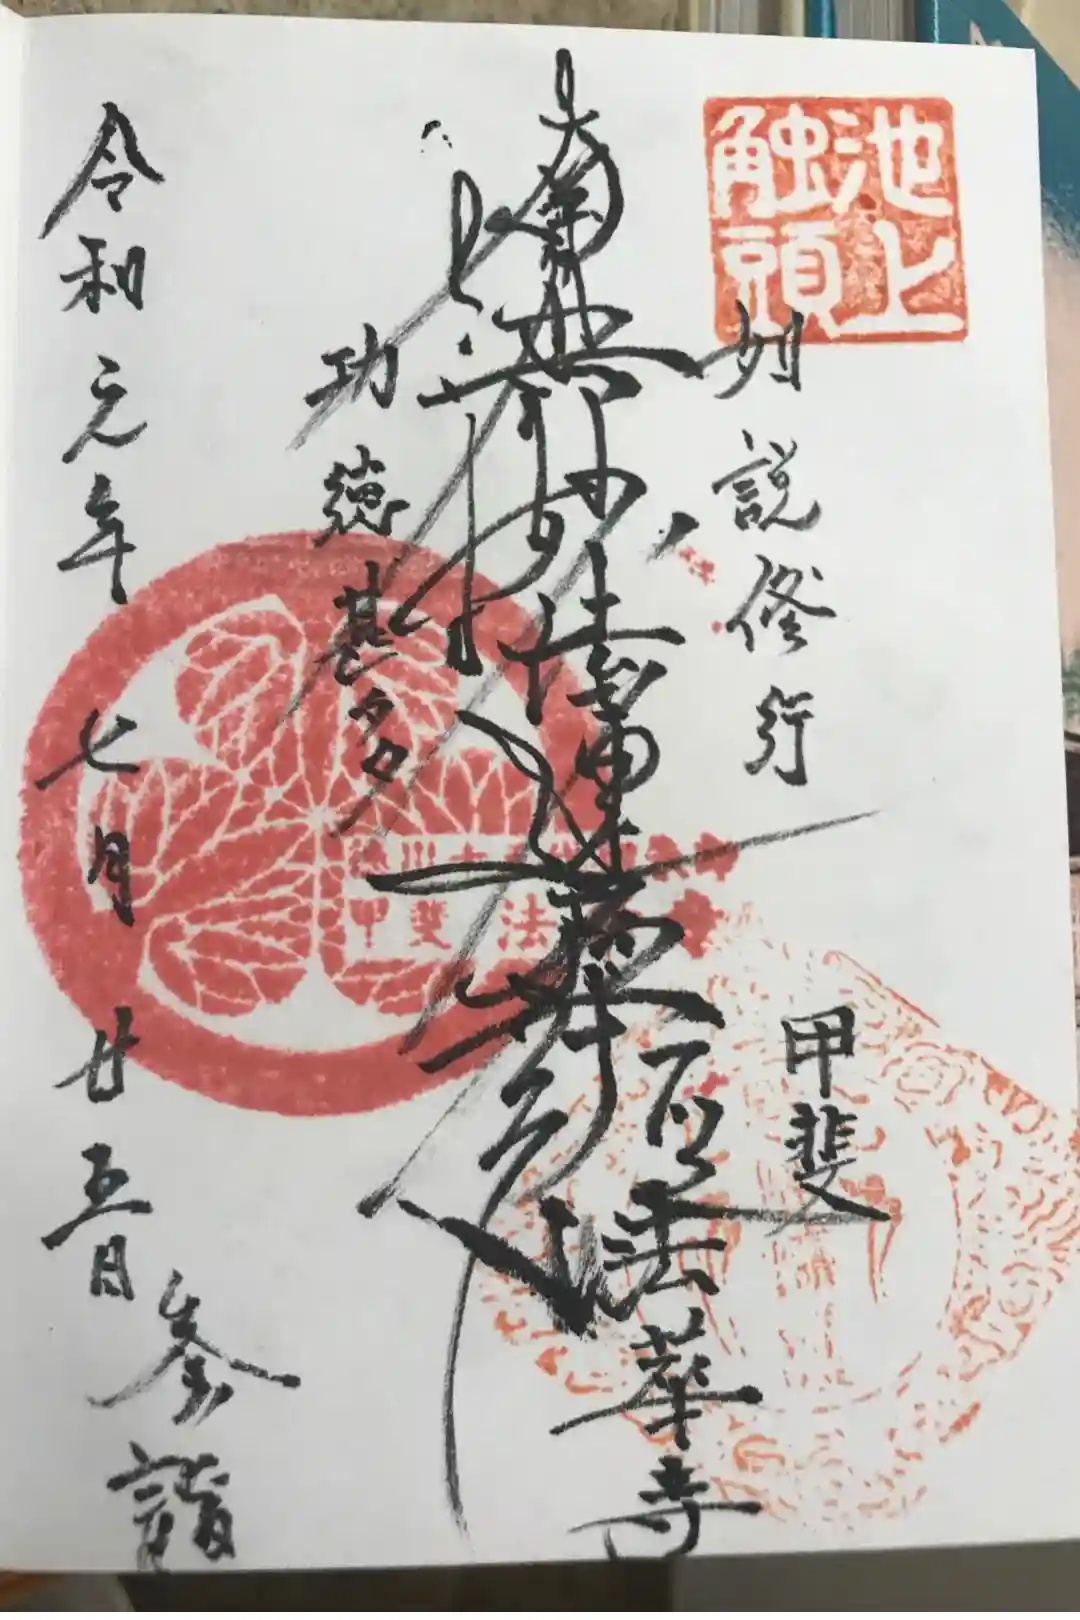 池上
触頭
如説修行
南無妙法蓮華経
甲斐
法華寺
功徳甚多
甲斐 法
令和元年七月廿五日
参詣